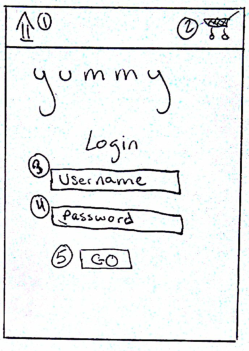 1 2
yummy
Login
3 Username
4 Password
5 GO